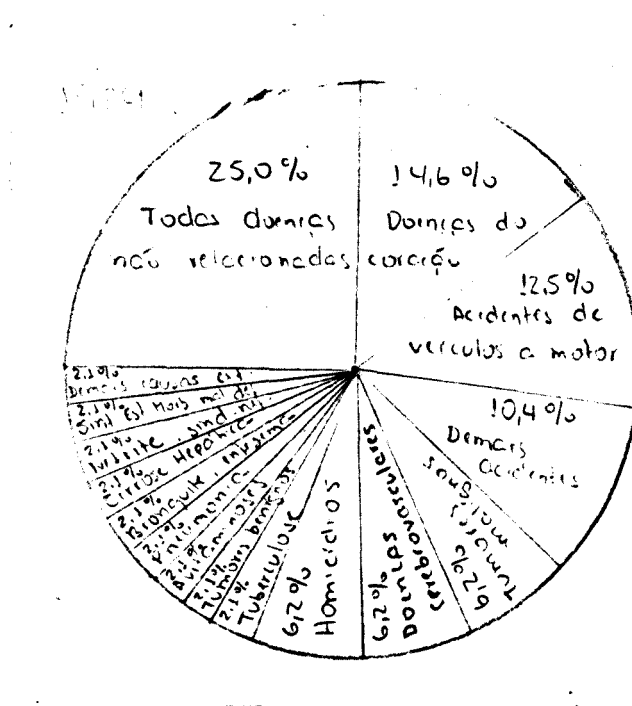 25,0%
Todas doenças
não relacionadas
14,6%
Doenças do
coração
12,5%
Acidentes de
veículos a motor
10,4%
Demais
acidentes
Tumores
malignos
6,2%
Doenças
cerebrovasculares
6,2%
Homicídios
6,2%
Tuberculose
2.1%
Tumores benignos
2.1%
Avitaminoses
2.1%
Pneumonia
2.1%
Bronquite, enfisema
2.1%
Cirrose Hepática
2.1%
2.1%
Sint Est Morb mal def
2.1%
Demais causas ext
2.1%